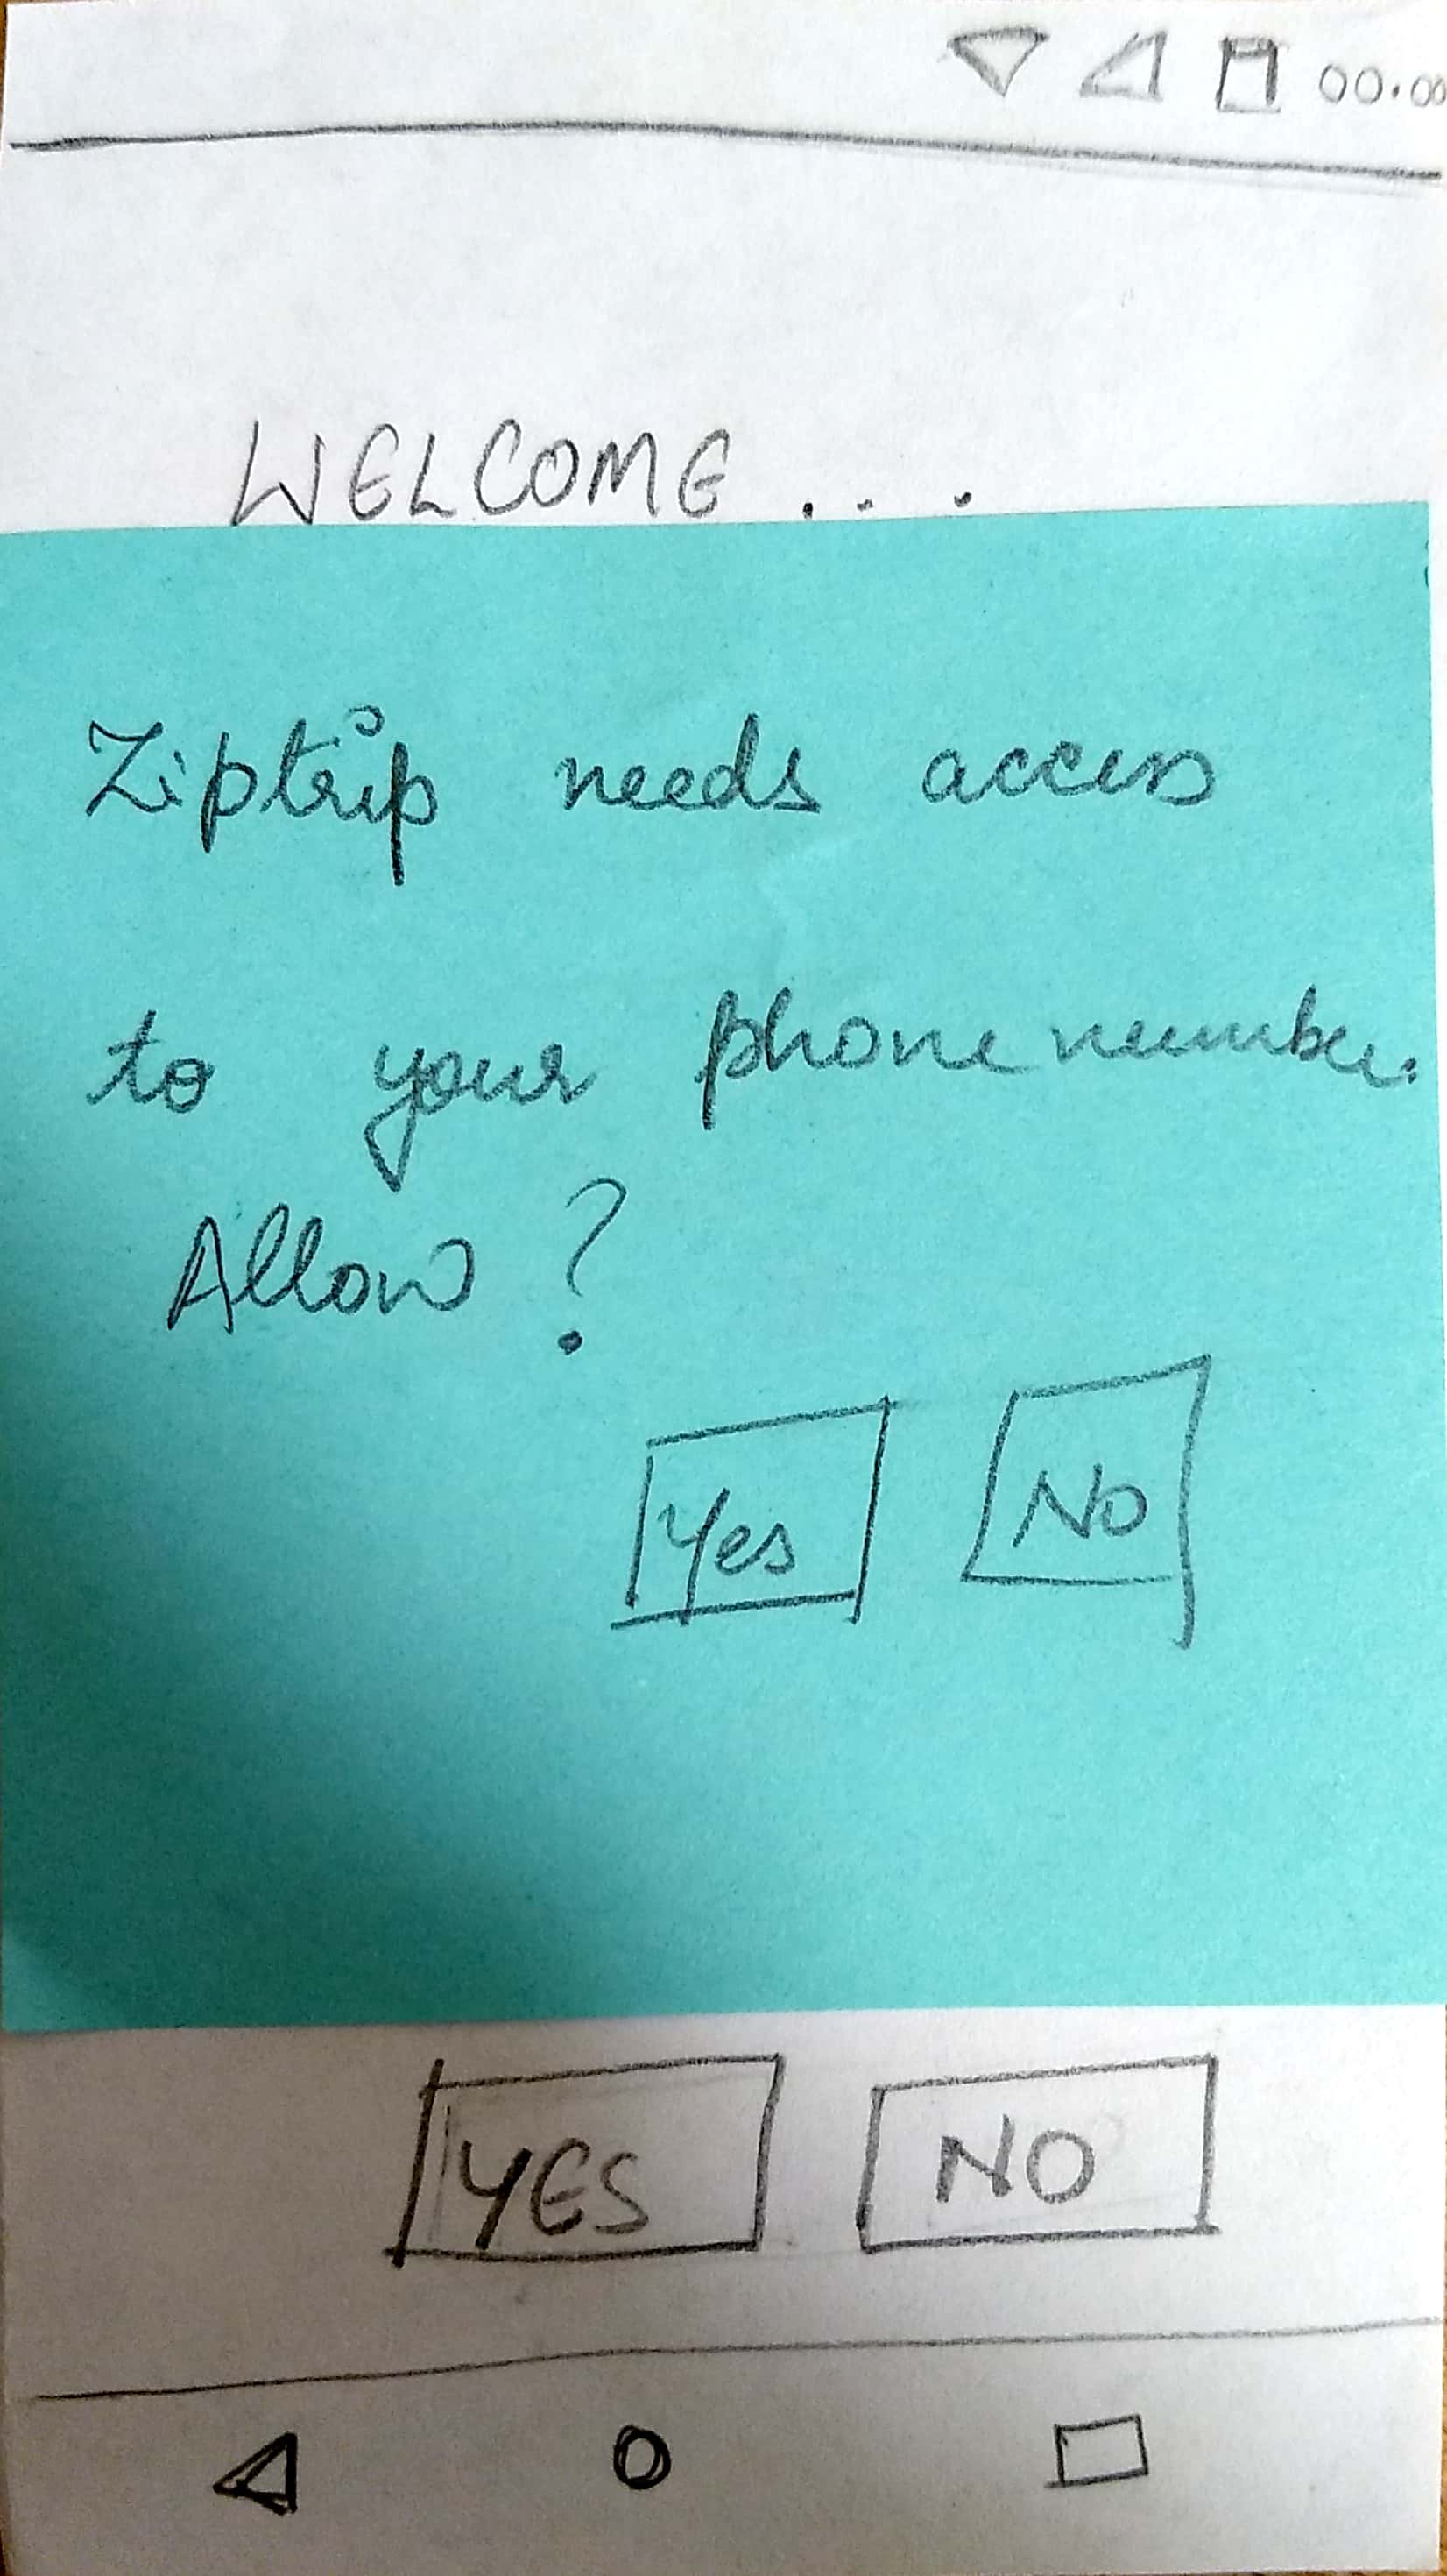 00.00
WELCOME...
Ziptrip needs access
to your phone number.
Allow?
Yes No
YES NO